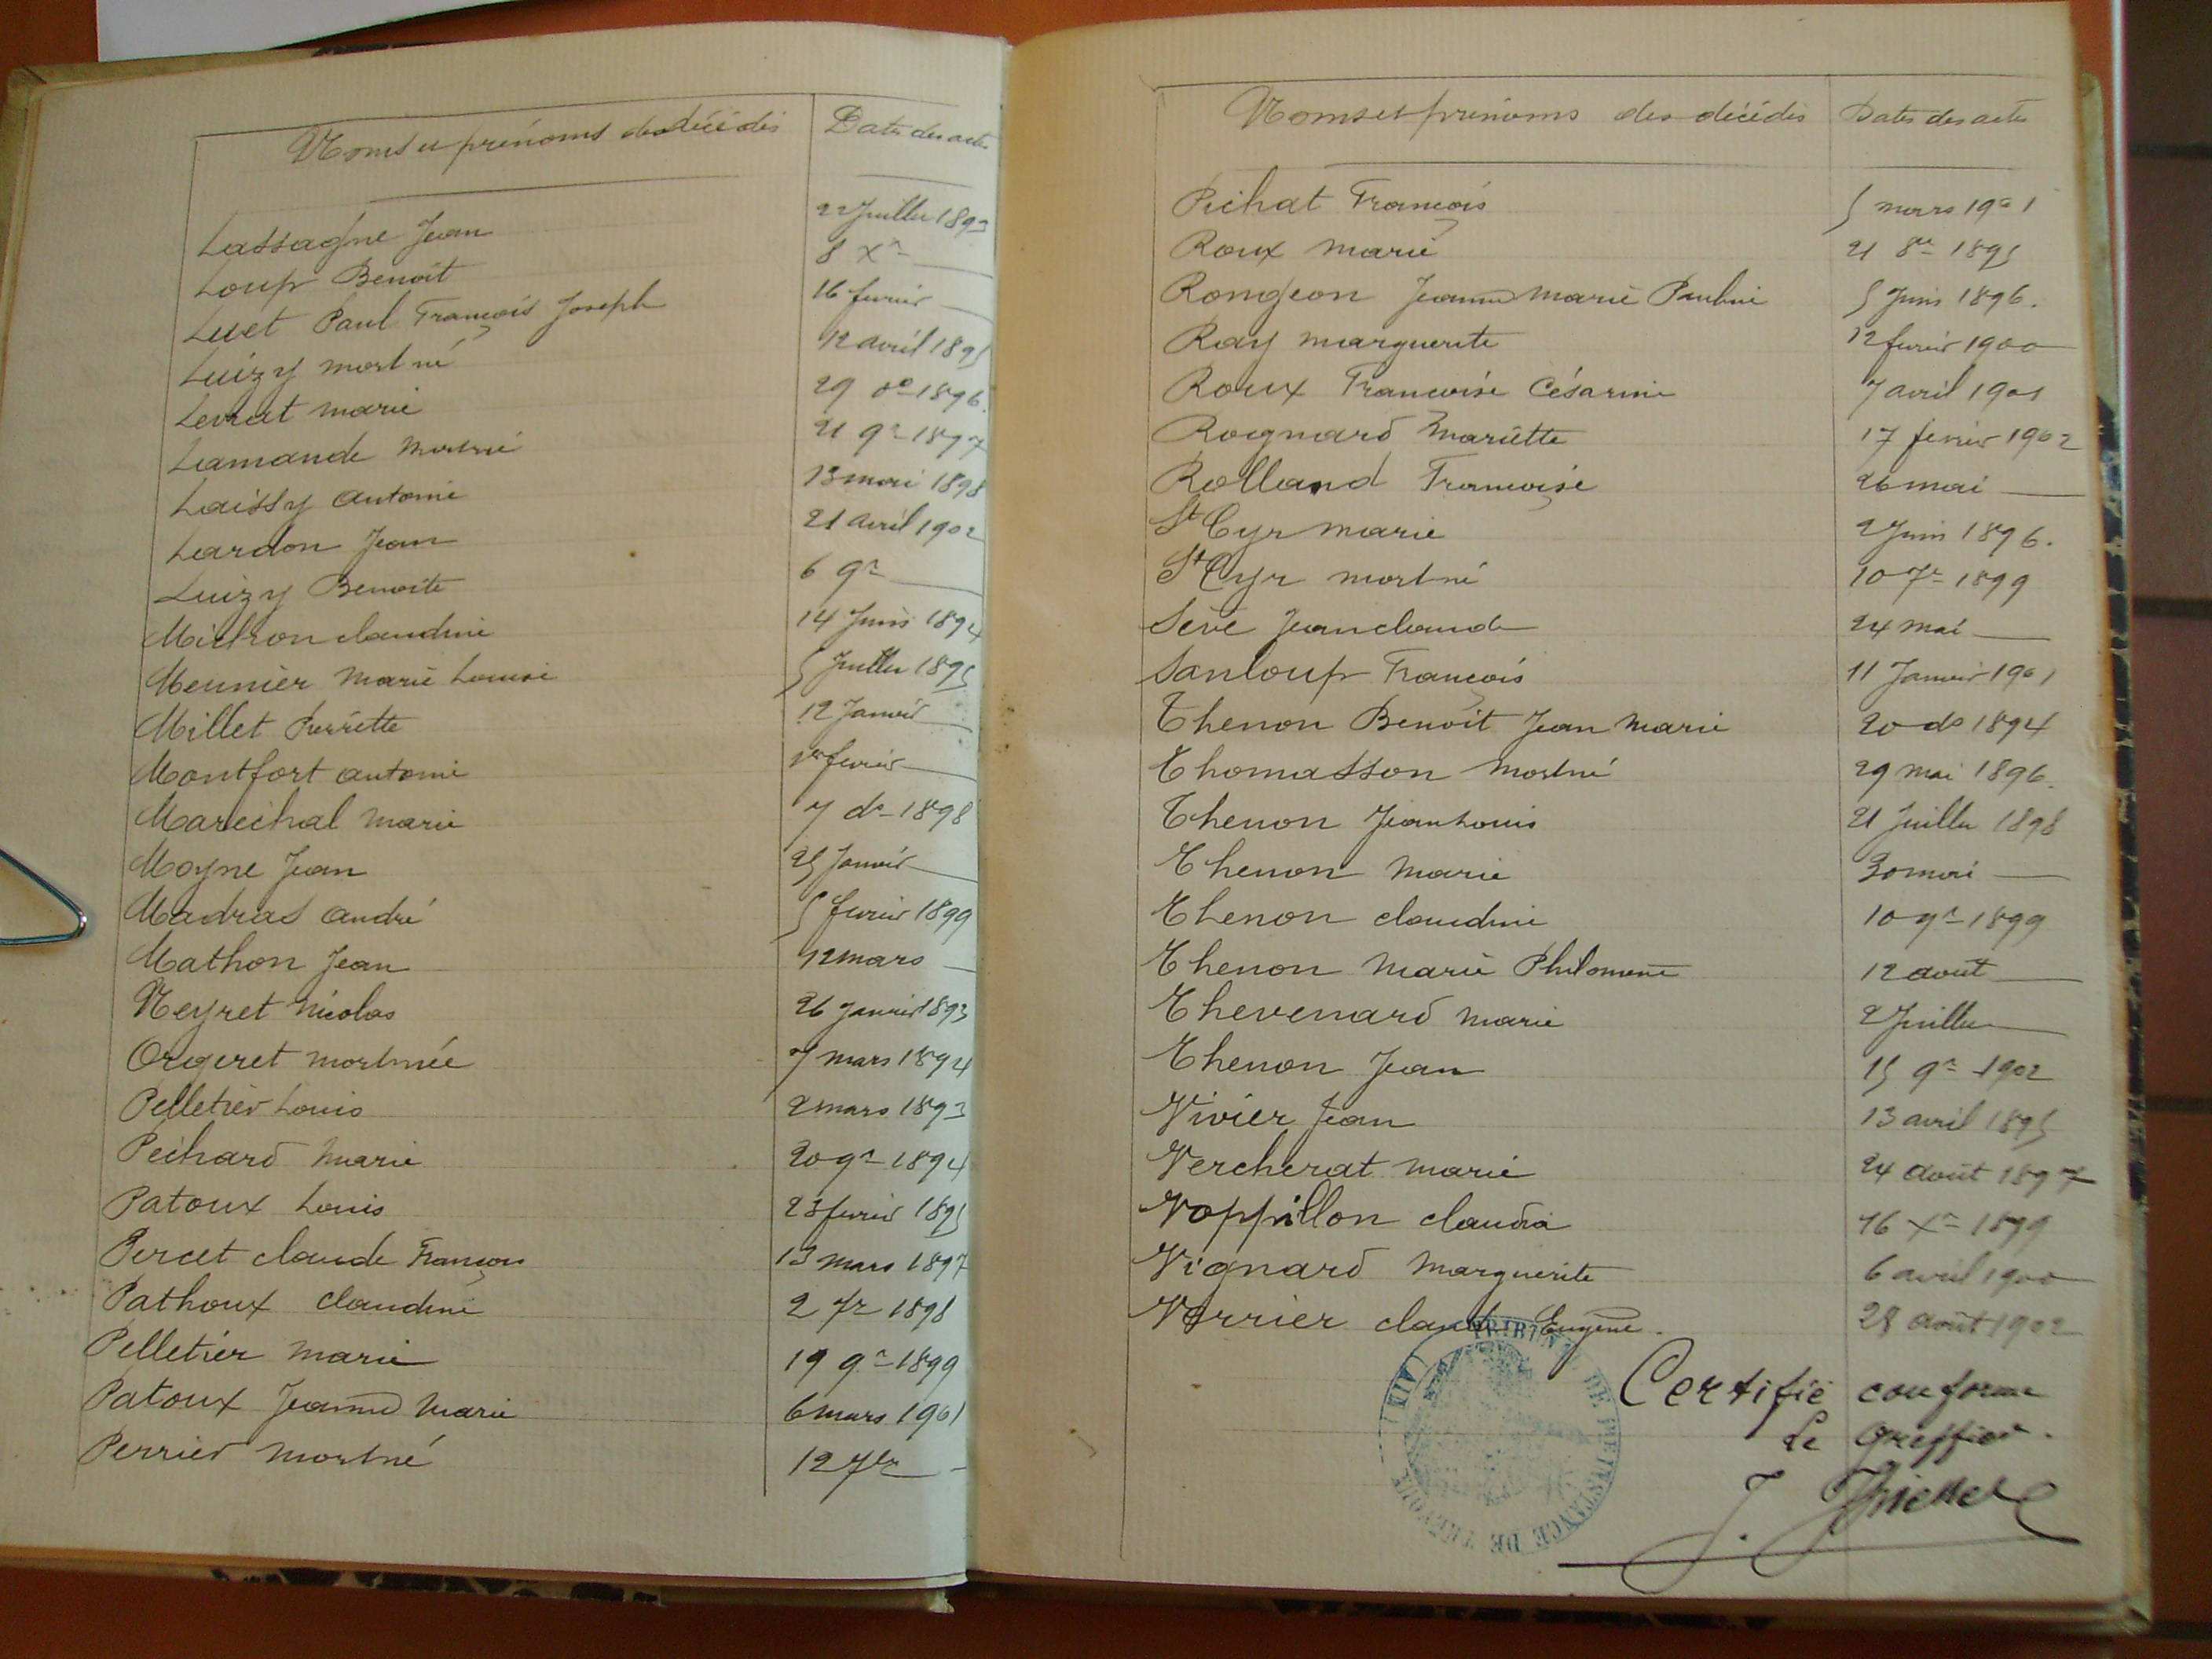 Noms et prénoms des décédés Dates des actes
Lassagne Jean 22 Juillet 1893
Loup Benoit 8 Xre —
Luet Paul François Joseph 16 fevrier —
Luizy mort né 12 avril 1895
Levrat marie 29 do 1896.
Lamande Mort né 21 9re 1897
Laissy antoine 13 mai 1898
Lardon Jean 21 avril 1902
Luizy Benoite 6 9re —
Michon claudine 14 Juin 1894
Meunier Marie Louise 5 Juillet 1895
Millet Pierrette 12 Janvier —
Montfort antoine 1er fevrier —
Maréchal Marie 7 do 1898
Moyne Jean 25 Janvier —
Madras andré 5 fevrier 1899
Mathon Jean 12 mars —
Neyret Nicolas 26 Janvier 1893
Origeret mort née 7 mars 1894
Pelletier Louis 2 mars 1893
Péchard Marie 20 9re 1894
Patoux Louis 23 fevrier 1895
Percet claude François 13 mars 1897
Pathoux claudine 2 7re 1898
Pelletier Marie 19 9re 1899
Patoux Jeanne Marie 6 mars 1901
Perrier mort né 12 7bre —
Noms et prénoms des décédés Dates des actes
Pichat François 5 mars 1901
Roux Marie 21 8re 1895
Rongeon Jeanne Marie Pauline 5 Juin 1896.
Ray Marguerite 12 fevrier 1900
Roux Françoise Césarine 7 avril 1901
Rognard Mariette 17 fevrier 1902
Rolland Françoise 26 mai —
St Cyr Marie 2 Juin 1896.
St Cyr mort né 10 7re 1899
Sève Jean claude 24 mai —
Sanloup François 11 Janvier 1901
Thenon Benoit Jean Marie 20 do 1894
Thomasson Mort né 29 mai 1896.
Thenon Jean Louis 21 Juillet 1898
Thenon Marie 30 mai —
Thenon claudine 10 9re 1899
Thenon Marie Philomene 12 août —
Thevenard Marie 2 Juillet —
Thenon Jean 15 9re 1902
Vivier Jean 13 avril 1895
Vercherat Marie 24 août 1897
Voppillon claudia 16 Xre 1899
Vignard Marguerite 6 avril 1900
Verrier claude Eugène. 28 août 1902
Certifié conforme
Le Greffier.
TRIBUNAL DE 1re INSTANCE DE TRÉVOUX (AIN)